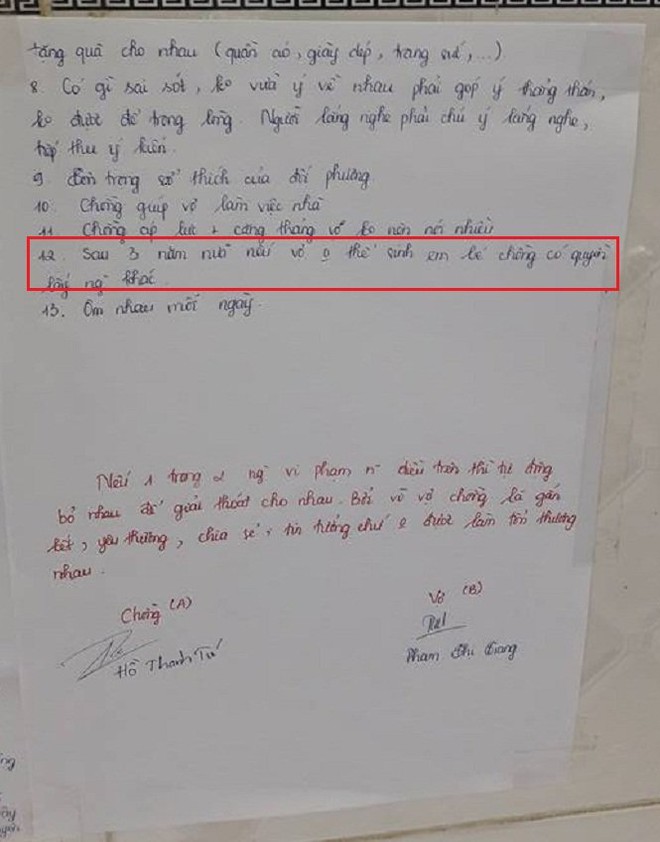 tặng quà cho nhau (quần áo, giày dép, trang sức,...).
8. Có gì sai sót, ko vừa ý về nhau phải góp ý thẳng thắn,
ko được để trong lòng. Người lắng nghe phải chú ý lắng nghe,
tiếp thu ý kiến.
9. Tôn trọng sở thích của đối phương.
10. Chồng giúp vợ làm việc nhà
11. Chồng áp lực + căng thẳng vợ ko nên nói nhiều
12. Sau 3 năm nữa nếu vợ o thể sinh em bé chồng có quyền
lấy ng khác.
13. Ôm nhau mỗi ngày.
Nếu 1 trong 2 ng vi phạm n~ điều trên thì tự động
bỏ nhau để giải thoát cho nhau. Bởi vì vợ chồng là gắn
kết, yêu thương, chia sẻ, tin tưởng chứ o được làm tổn thương
nhau.
Chồng (A)
Vợ (B)
Hồ Thanh Tú
Phạm Thị Giang